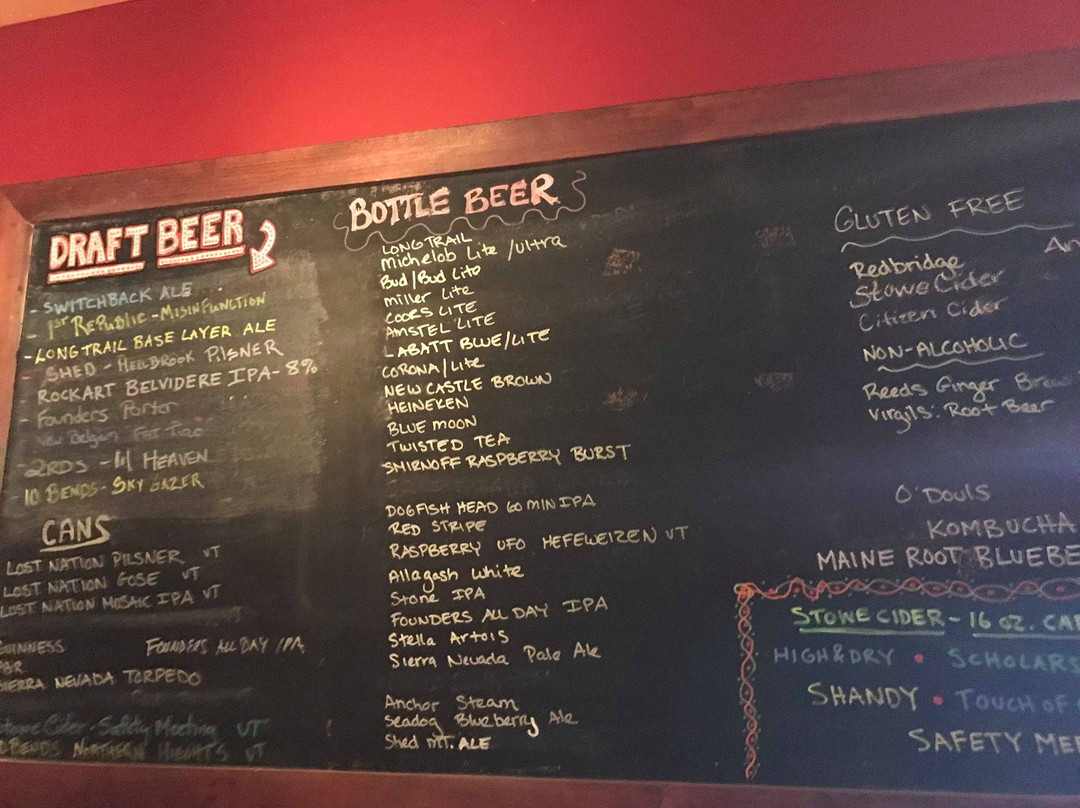 DRAFT BEER
- SWITCHBACK ALE
- 1ST REPUBLIC - MISINFUNCTION
- LONG TRAIL BASE LAYER ALE
- SHED - HELLBROOK PILSNER
ROCKART BELVIDERE IPA - 8%
- Founders Porter
New Belgium Fat Tire
- 2RDS - HEAVEN
- 10 BENDS - SKY GAZER
CANS
LOST NATION PILSNER VT
LOST NATION GOSE VT
LOST NATION MOSAIC IPA VT
GUINNESS FOUNDERS ALL DAY IPA
PBR
SIERRA NEVADA TORPEDO
Stowe Cider - Safety Meeting VT
10 BENDS NORTHERN HEIGHTS VT
BOTTLE BEER
LONG TRAIL
Michelob Lite / Ultra
Bud/Bud Lite
miller Lite
COORS LITE
AMSTEL LITE
LABATT BLUE/LITE
CORONA/Lite
NEW CASTLE BROWN
HEINEKEN
BLUE MOON
TWISTED TEA
SMIRNOFF RASPBERRY BURST
DOGFISH HEAD 60 MIN IPA
RED STRIPE
RASPBERRY UFO HEFEWEIZEN VT
Allagash White
Stone IPA
FOUNDERS ALL DAY IPA
Stella Artois
Sierra Nevada Pale Ale
Anchor Steam
Seadog Blueberry Ale
Shed MT. ALE
GLUTEN FREE
Redbridge
Stowe Cider
Citizen Cider
NON-ALCOHOLIC
Reeds Ginger Brew
Virgils: Root Beer
O'Douls
KOMBUCHA
MAINE ROOT BLUEBE
STOWE CIDER - 16 OZ. CA
HIGH & DRY • SCHOLARS
SHANDY • TOUCH OF
SAFETY MEE